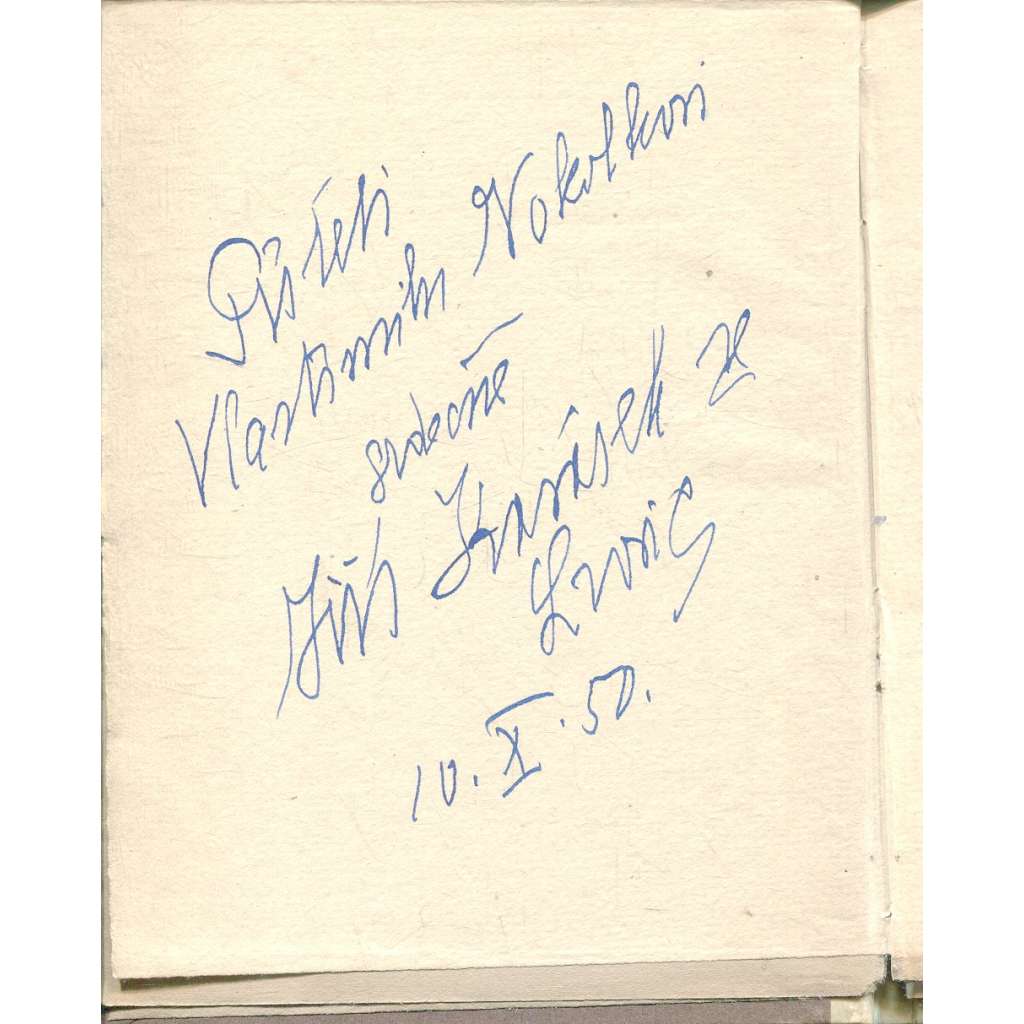 Příteli
Vlastimilu Vokolkovi
srdečně
Jiří Karásek ze
Lvovic
10. X. 50.